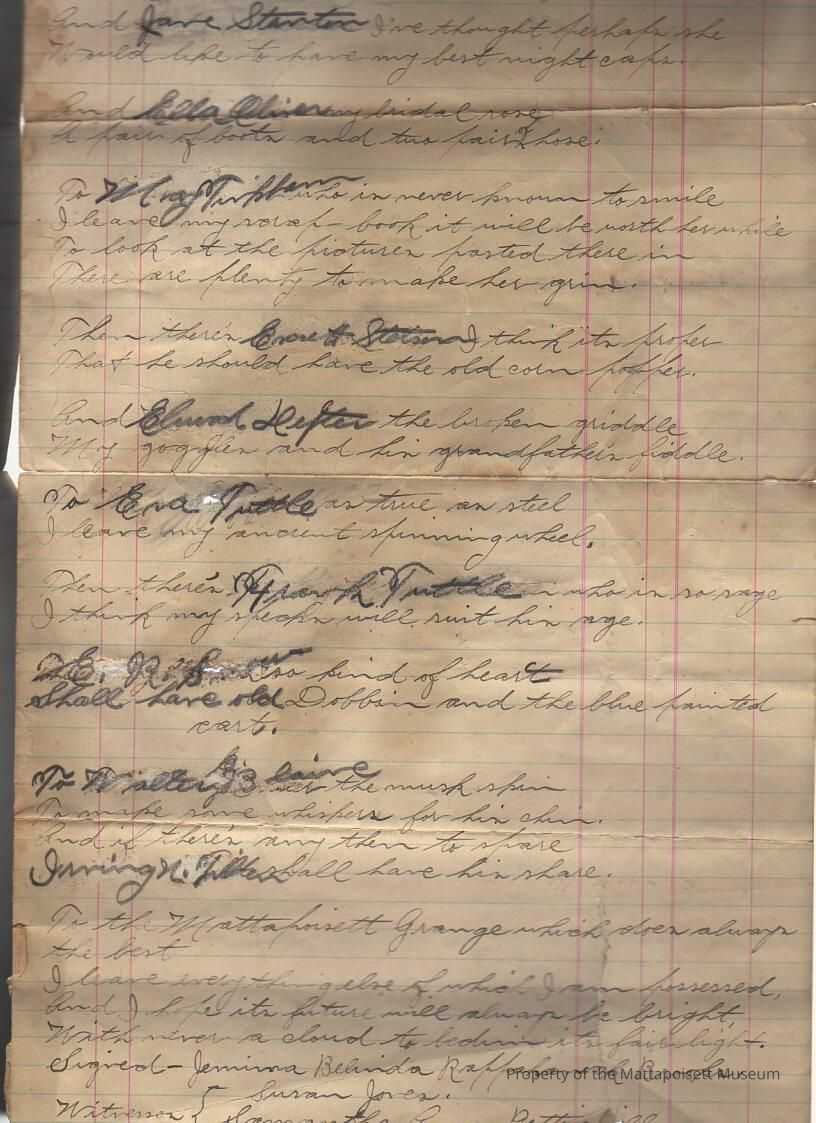 And Jane Stanton I've thought perhaps she
Would like to have my best night caps.
And Ella Oliver my bridal rose
A pair of boots and two pairs of hose.
To who is never known to smile
I leave my scrap-book it will be worth her while
To look at the pictures pasted there in
There are plenty to make her grin.
Then there's Everett Stetson I think its proper
That he should have the old corn popper.
And the broken griddle
My goggles and his grandfather's fiddle.
To Eva Tuttle as true as steel
I leave my ancient spinning wheel.
Then there's Frank Tuttle who is so sage
I think my specks will suit his age.
E. R. so kind of heart
Shall have old Dobbin and the blue painted
cart.
To Walter the musk skin
To make some whiskers for his chin.
And if there's any then to spare
Irving N. shall have his share.
To the Mattapoisett Grange which does always
the best
I leave everything else of which I am possessed,
And I hope its future will always be bright,
With never a cloud to bedim its fair light.
Signed - Jemima Belinda
Susan Jones.
Witnesses {
Samantha
Property of the Mattapoisett Museum